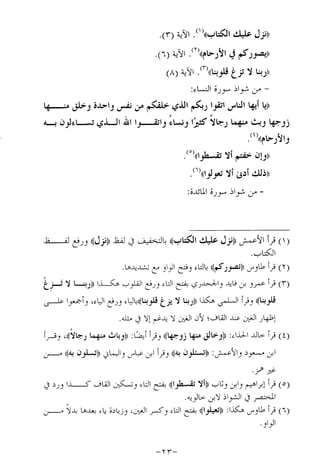 «نزل عليك الكتاب»(١). الآية (٣).
«يصوركم في الأرحام»(٢). الآية (٦).
«ربنا لا تزغ قلوبنا»(٣) الآية (٨)
- من شواذ سورة النساء:
«يا أيها الناس اتقوا ربكم الذي خلقكم من نفس واحدة وخلق منها
زوجها وبث منها رجالاً كثيراً ونساءً واتقوا الله الذي تساءلون به
والأرحام»(٤).
«وإن خفتم ألا تقسطوا»(٥).
«ذلك أدنى ألا تعولوا»(٦).
- من شواذ سورة المائدة:
(١) قرأ الأعمش «نزل عليك الكتاب» بالتخفيف في لفظ «نزل» ورفع لفظ
الكتاب.
(٢) قرأ طاوس «تصوركم» بالتاء وفتح الواو مع تشديدها.
(٣) قرأ عمرو بن فايد والجحدري بفتح التاء ورفع القلوب هكذا «ربنا لا تزغ
قلوبنا» وقرأ السلمي هكذا «ربنا لا يزغ قلوبنا» بالياء ورفع الياء، وأجمعوا على
إظهار الغين عند القاف؛ لأن الغين لا يدغم إلا في مثله.
(٤) قرأ خالد الحذاء: «وخالق منها زوجها» وقرأ أيضاً: «وباث منها رجالاً»، وقرأ
ابن مسعود والأعمش: «تسئلون به» وقرأ ابن عباس واليماني «تسلون به» من
غير همز.
(٥) قرأ إبراهيم وابن وثاب «ألا تقسطوا» بفتح التاء وبضم القاف كذا ورد في
المختصر في الشواذ لابن خالويه.
(٦) قرأ طاوس هكذا: «تعيلوا» بفتح التاء وكسر العين، وبزيادة ياء بعدها بدلاً من
الواو.
-٢٣-